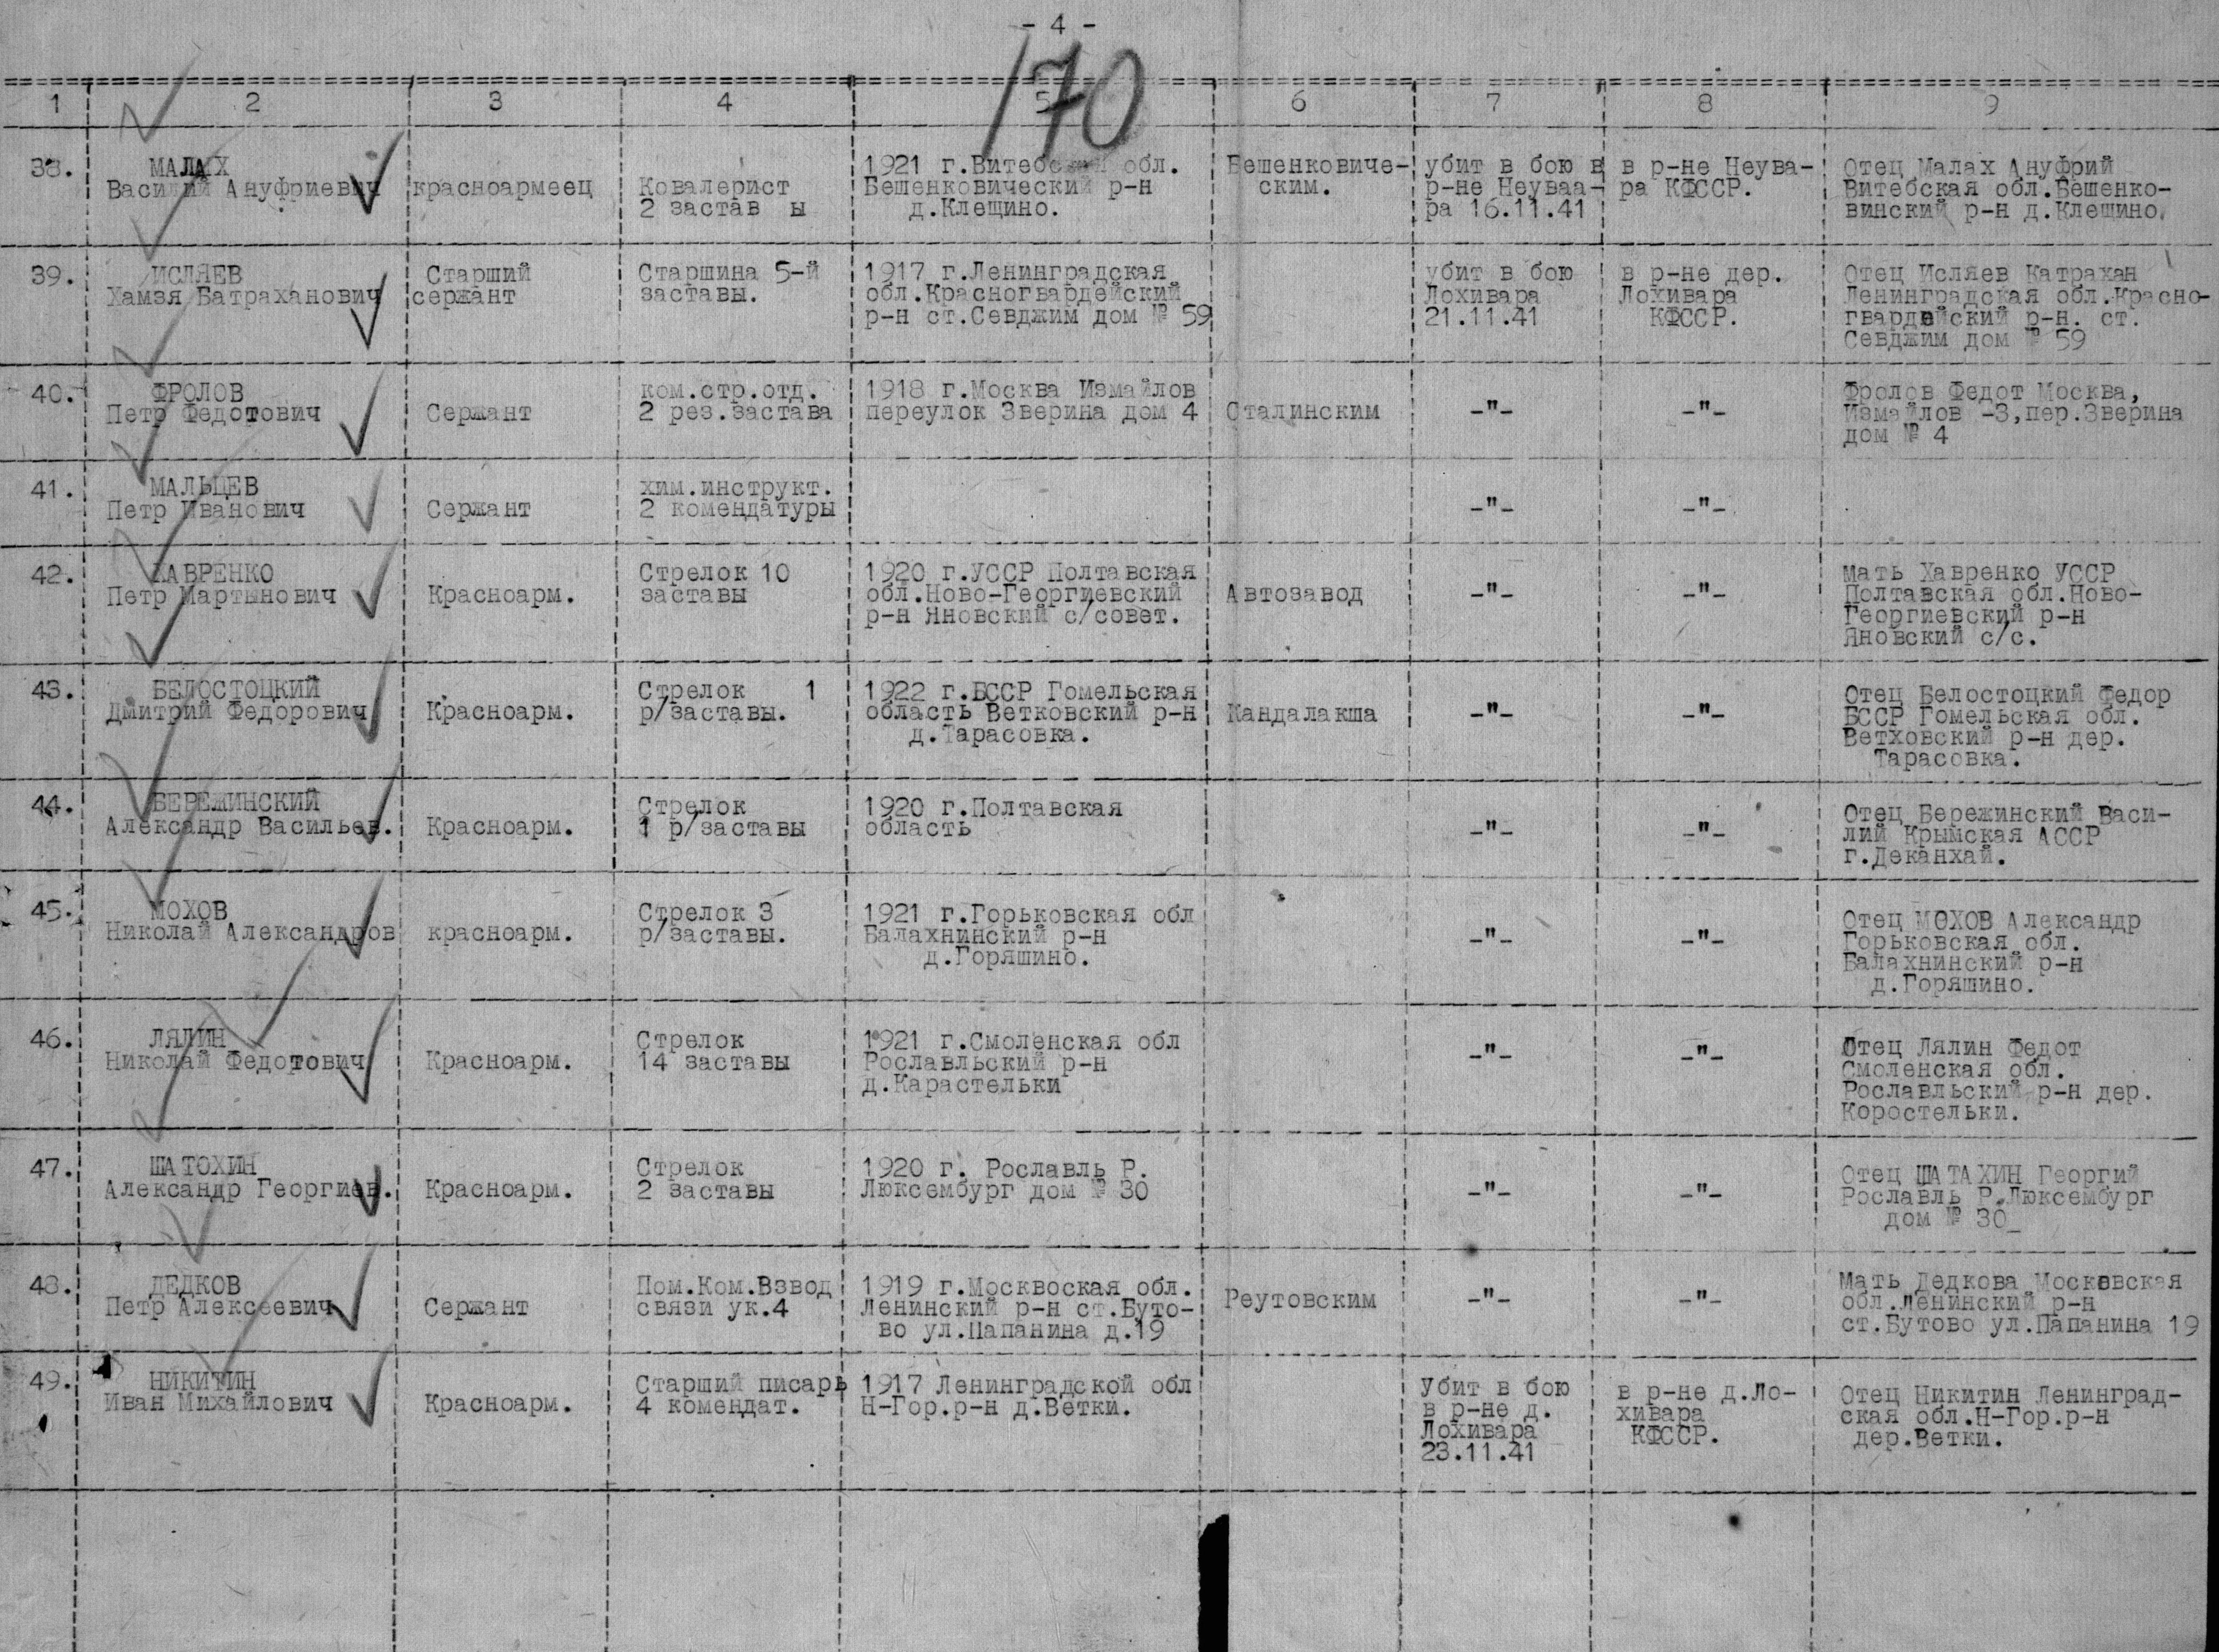 - 4 -
170
1 2 3 4 5 6 7 8 9
38.
МАЛАХ
Василий Ануфриевич
красноармеец
Ковалерист
2 застав ы
1921 г.Витебская обл.
Бешенковический р-н
д.Клещино.
Бешенковиче-
ским.
убит в бою в
р-не Неуваа-
ра 16.11.41
в р-не Неува-
ра КФССР.
Отец Малах Ануфрий
Витебская обл.Бешенко-
винский р-н д.Клещино.
39.
ИСЛЯЕВ
Хамзя Батраханович
Старший
сержант
Старшина 5-й
заставы.
1917 г.Ленинградская
обл.Красногвардейский
р-н ст.Севджим дом № 59
убит в бою
Лохивара
21.11.41
в р-не дер.
Лохивара
КФССР.
Отец Исляев Катрахан
Ленинградская обл.Красно-
гвардейский р-н. ст.
Севджим дом № 59
40.
ФРОЛОВ
Петр Федотович
Сержант
ком.стр.отд.
2 рез.застава
1918 г.Москва Измайлов
переулок Зверина дом 4
Сталинским
-"-
-"-
Фролов Федот Москва,
Измайлов -3,пер.Зверина
дом № 4
41.
МАЛЬЦЕВ
Петр Иванович
Сержант
хим.инструкт.
2 комендатуры
-"-
-"-
42.
ХАВРЕНКО
Петр Мартынович
Красноарм.
Стрелок 10
заставы
1920 г.УССР Полтавская
обл.Ново-Георгиевский
р-н Яновский с/совет.
Автозавод
-"-
-"-
Мать Хавренко УССР
Полтавская обл.Ново-
Георгиевский р-н
Яновский с/с.
43.
БЕЛОСТОЦКИЙ
Дмитрий Федорович
Красноарм.
Стрелок 1
р/заставы.
1922 г.БССР Гомельская
область Ветковский р-н
д.Тарасовка.
Кандалакша
-"-
-"-
Отец Белостоцкий Федор
БССР Гомельская обл.
Ветховский р-н дер.
Тарасовка.
44.
БЕРЕЖИНСКИЙ
Александр Васильев.
Красноарм.
Стрелок
1 р/заставы
1920 г.Полтавская
область
-"-
-"-
Отец Бережинский Васи-
лий Крымская АССР
г.Деканхай.
45.
МОХОВ
Николай Александров
красноарм.
Стрелок 3
р/заставы.
1921 г.Горьковская обл
Балахнинский р-н
д.Горяшино.
-"-
-"-
Отец МОХОВ Александр
Горьковская обл.
Балахнинский р-н
д.Горяшино.
46.
ЛЯЛИН
Николай Федотович
Красноарм.
Стрелок
14 заставы
1921 г.Смоленская обл
Рославльский р-н
д.Карастельки
-"-
-"-
Отец Лялин Федот
Смоленская обл.
Рославльский р-н дер.
Коростельки.
47.
ШАТОХИН
Александр Георгиев.
Красноарм.
Стрелок
2 заставы
1920 г. Рославль Р.
Люксембург дом № 30
-"-
-"-
Отец ШАТАХИН Георгий
Рославль Р.Люксембург
дом № 30_
48.
ДЕДКОВ
Петр Алексеевич
Сержант
Пом.Ком.Взвод
связи ук.4
1919 г.Москвоская обл.
Ленинский р-н ст.Буто-
во ул.Папанина д.19
Реутовским
-"-
-"-
Мать Дедкова Московская
обл.Ленинский р-н
ст.Бутово ул.Папанина 19
49.
НИКИТИН
Иван Михайлович
Красноарм.
Старший писарь
4 комендат.
1917 Ленинградской обл
Н-Гор.р-н д.Ветки.
Убит в бою
в р-не д.
Лохивара
23.11.41
в р-не д.Ло-
хивара
КФССР.
Отец Никитин Ленинград-
ская обл.Н-Гор.р-н
дер.Ветки.